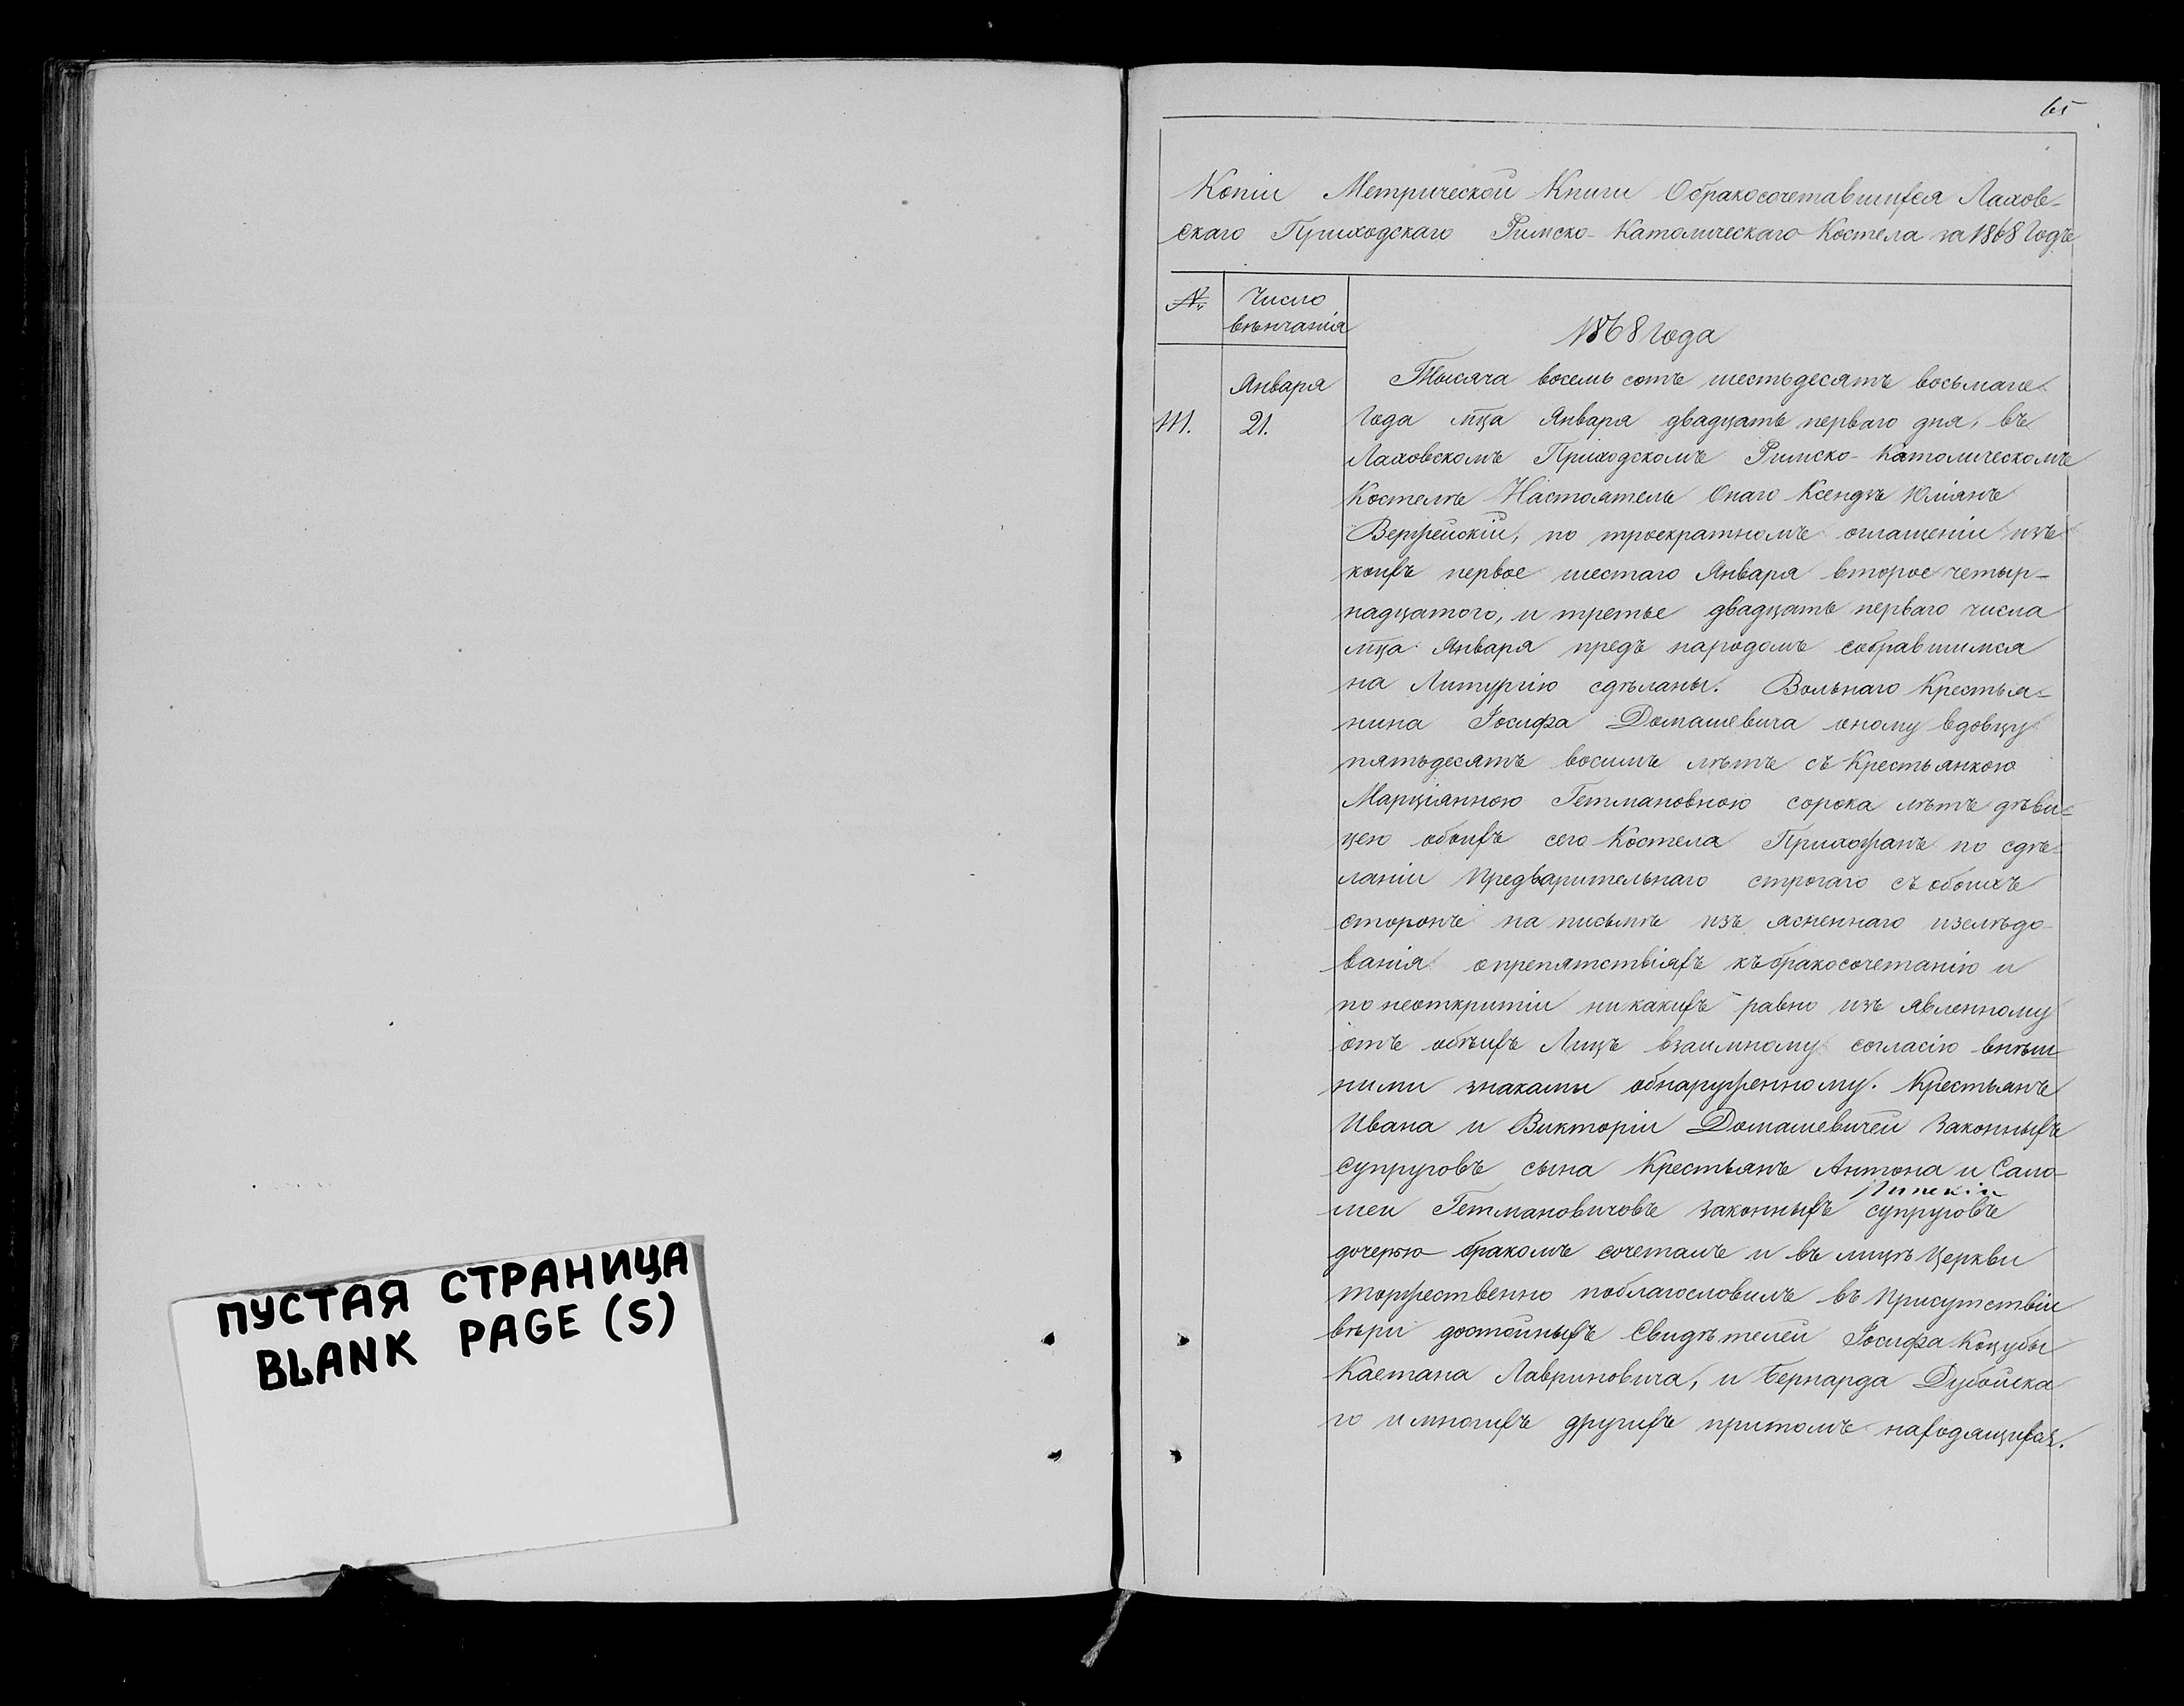 65
Копіи Метрической Книги Обракосочетавшихся Лахов-
скаго Приходскаго Римско-Католическаго Костела за 1868 Годъ
№ Число
вѣнчанія
1868 года
Января
М. 21.
Тысяча восемь сотъ шестьдесятъ восьмаго
года мца Января двадцать перваго дня, въ
Лаховскомъ Приходскомъ Римско-Католическомъ
Костелѣ Настоятель Онаго Ксендзъ Юліянъ
Вержейскій, по троекратномъ оглашеніи изъ
коихъ первое шестаго Января второе четыр-
надцатого, и третье двадцать перваго числа
мца Января предъ народомъ собравшимся
на Литургію сдѣланы. Вольнаго Крестья-
нина Іосифа Домашевича оному вдовцу
пятьдесятъ восимъ лѣтъ съ Крестьянкою
Марціянною Гетмановною сорока лѣтъ дѣви-
цею обоихъ сего Костела Прихожанъ по сдѣ-
ланіи предварительнаго строгаго съ обоихъ
сторонъ на письмѣ изъ ясненнаго изслѣдо-
ванія опрепятствіяхъ къ бракосочетанію и
по неоткритіи никакихъ равно изъ явленному
отъ обѣихъ Лицъ взаимному согласію внѣш
ними знаками обнаруженному. Крестьянъ
Ивана и Викторіи Домашевичей Законныхъ
Супруговъ сына Крестьянъ Антона и Сало-
меи Гетмановичовъ законныхъ супруговъ
дочерью бракомъ сочеталъ и въ лицѣ Церкви
торжественно поблагословилъ въ присутствіи
вѣри достойныхъ Свидѣтелей Іосифа Коцубы
Каетана Лавриновича, и Бернарда Дубойска
го и многихъ другихъ притомъ находящихся.
ПУСТАЯ СТРАНИЦА
BLANK PAGE (S)